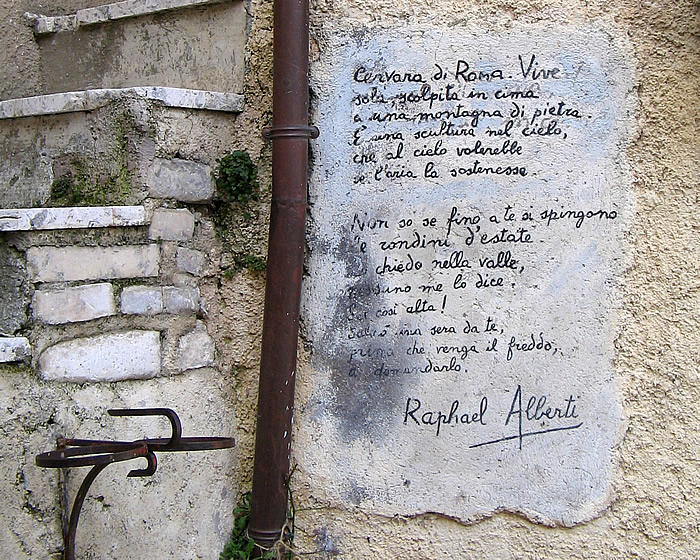 Cervara di Roma. Vive
sola, scolpita in cima
a una montagna di pietra.
È una scultura nel cielo,
che al cielo volerebbe
se l'aria la sostenesse.
Non so se fino a te si spingono
le rondini d'estate.
chiedo nella valle,
nessuno me lo dice.
Sei così alta!
Salirò una sera da te,
prima che venga il freddo,
a domandarlo.
Raphael Alberti